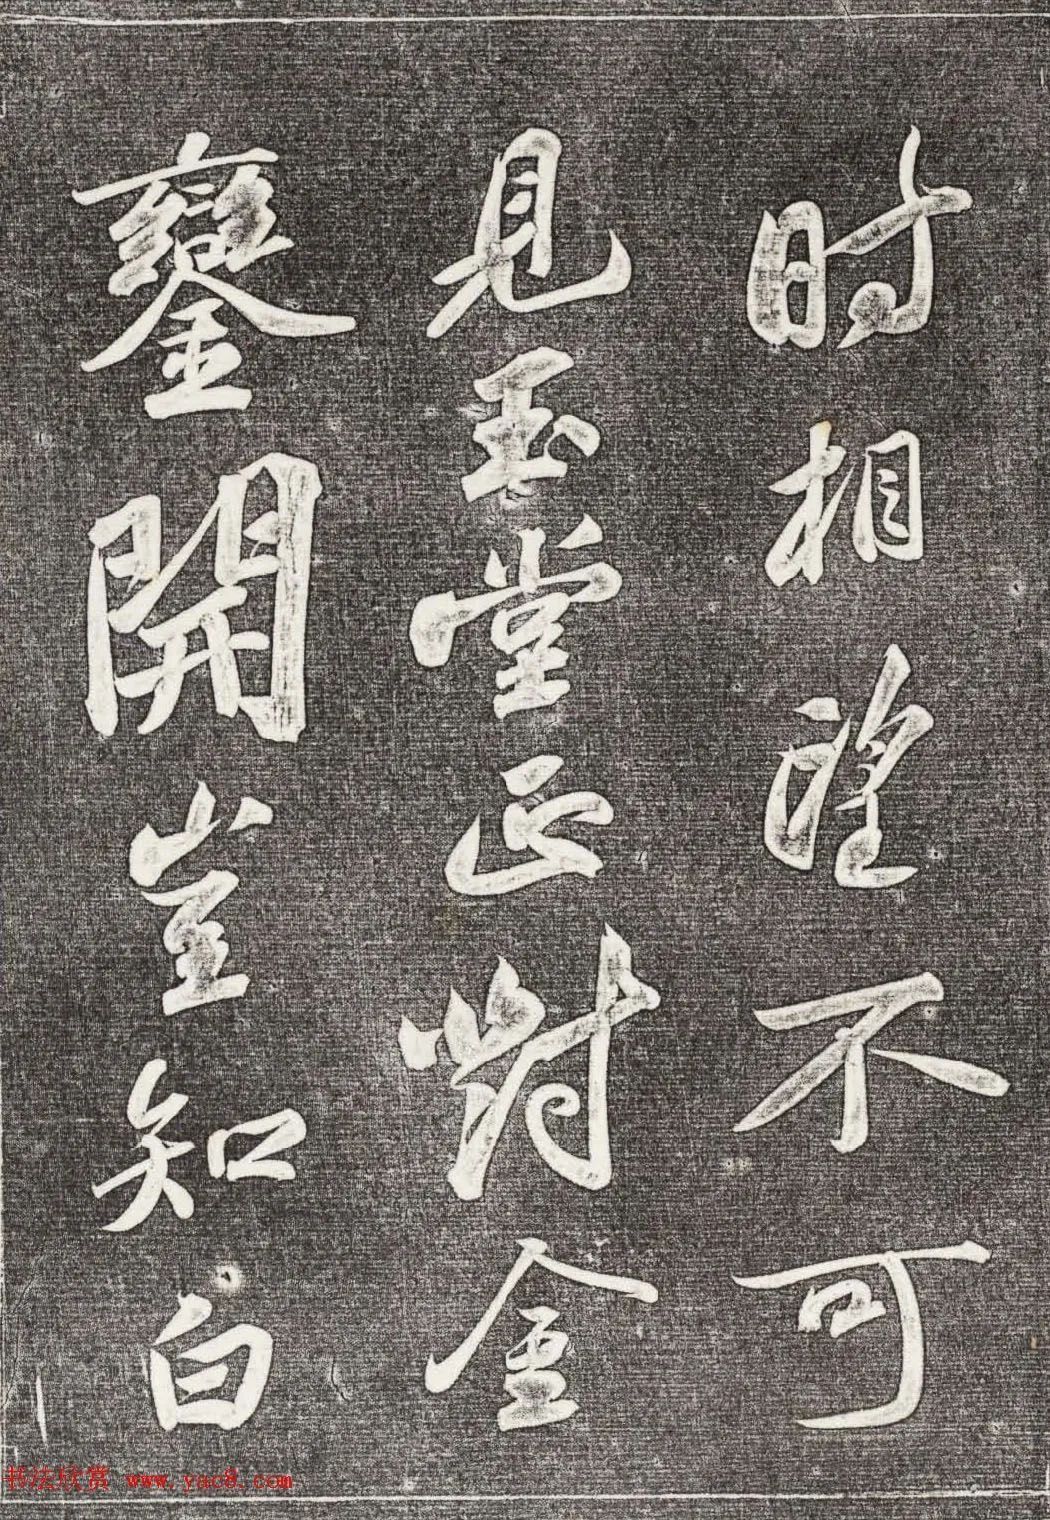 时相望不可
見玉堂正對金
鑾開豈知白
书法欣赏 www.yac8.com